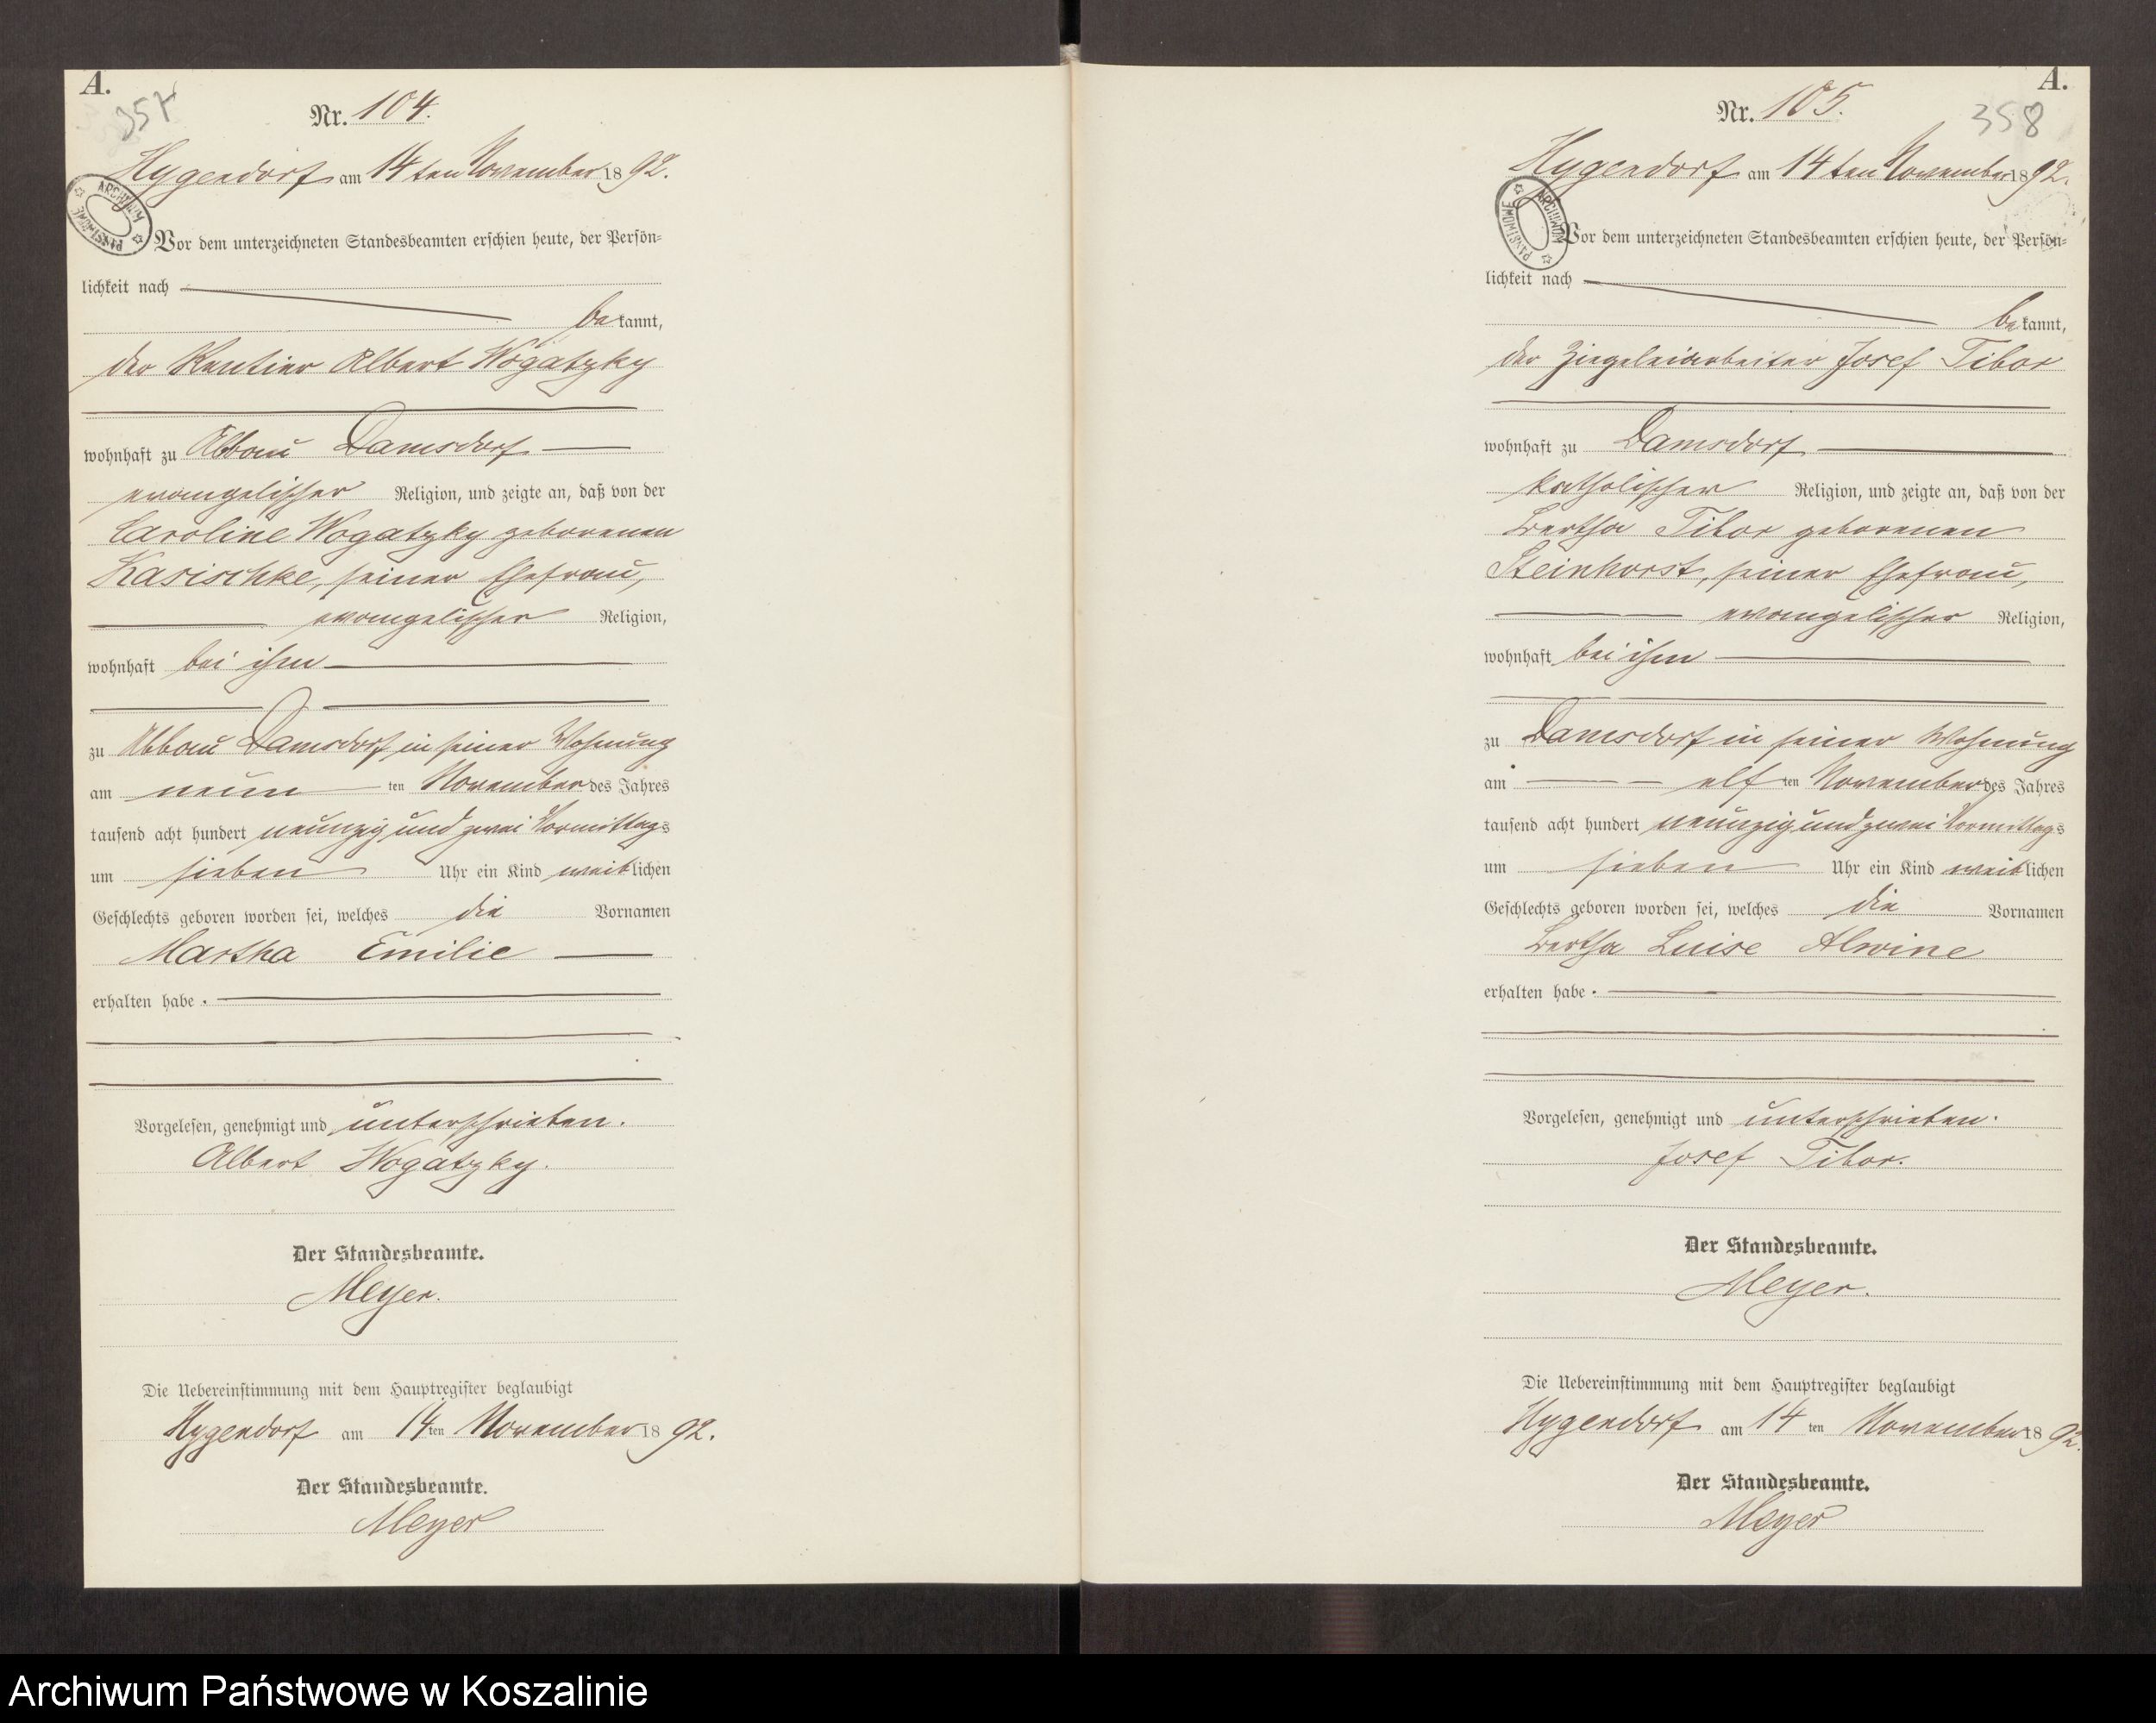 A.
357
Nr. 104.
Hygendorf am 14ten November 1892.
ARCHIWUM PAŃSTWOWE
Vor dem unterzeichneten Standesbeamten erschien heute, der Persön=
lichkeit nach
bekannt,
der Rentier Albert Wogatzky
wohnhaft zu Abbau Damsdorf
evangelischer Religion, und zeigte an, daß von der
Caroline Wogatzky geborenen
Kasischke, seiner Ehefrau,
evangelischer Religion,
wohnhaft bei ihm
zu Abbau Damsdorf in seiner Wohnung
am neun ten November des Jahres
tausend acht hundert neunzig und zwei Vormittags
um sieben Uhr ein Kind weiblichen
Geschlechts geboren worden sei, welches die Vornamen
Martha Emilie
erhalten habe.
Vorgelesen, genehmigt und unterschrieben.
Albert Wogatzky.
Der Standesbeamte.
Meyer.
Die Uebereinstimmung mit dem Hauptregister beglaubigt
Hygendorf am 14ten November 1892.
Der Standesbeamte.
Meyer
A.
358
Nr. 105.
Hygendorf am 14ten November 1892.
ARCHIWUM PAŃSTWOWE
Vor dem unterzeichneten Standesbeamten erschien heute, der Persön=
lichkeit nach
bekannt,
der Ziegeleiarbeiter Josef Tibor
wohnhaft zu Damsdorf
katholischer Religion, und zeigte an, daß von der
Bertha Tibor geborenen
Steinhorst, seiner Ehefrau,
evangelischer Religion,
wohnhaft bei ihm
zu Damsdorf in seiner Wohnung
am elf ten November des Jahres
tausend acht hundert neunzig und zwei Vormittags
um sieben Uhr ein Kind weiblichen
Geschlechts geboren worden sei, welches die Vornamen
Bertha Luise Alwine
erhalten habe.
Vorgelesen, genehmigt und unterschrieben.
Josef Tibor.
Der Standesbeamte.
Meyer.
Die Uebereinstimmung mit dem Hauptregister beglaubigt
Hygendorf am 14 ten November 1892.
Der Standesbeamte.
Meyer
Archiwum Państwowe w Koszalinie